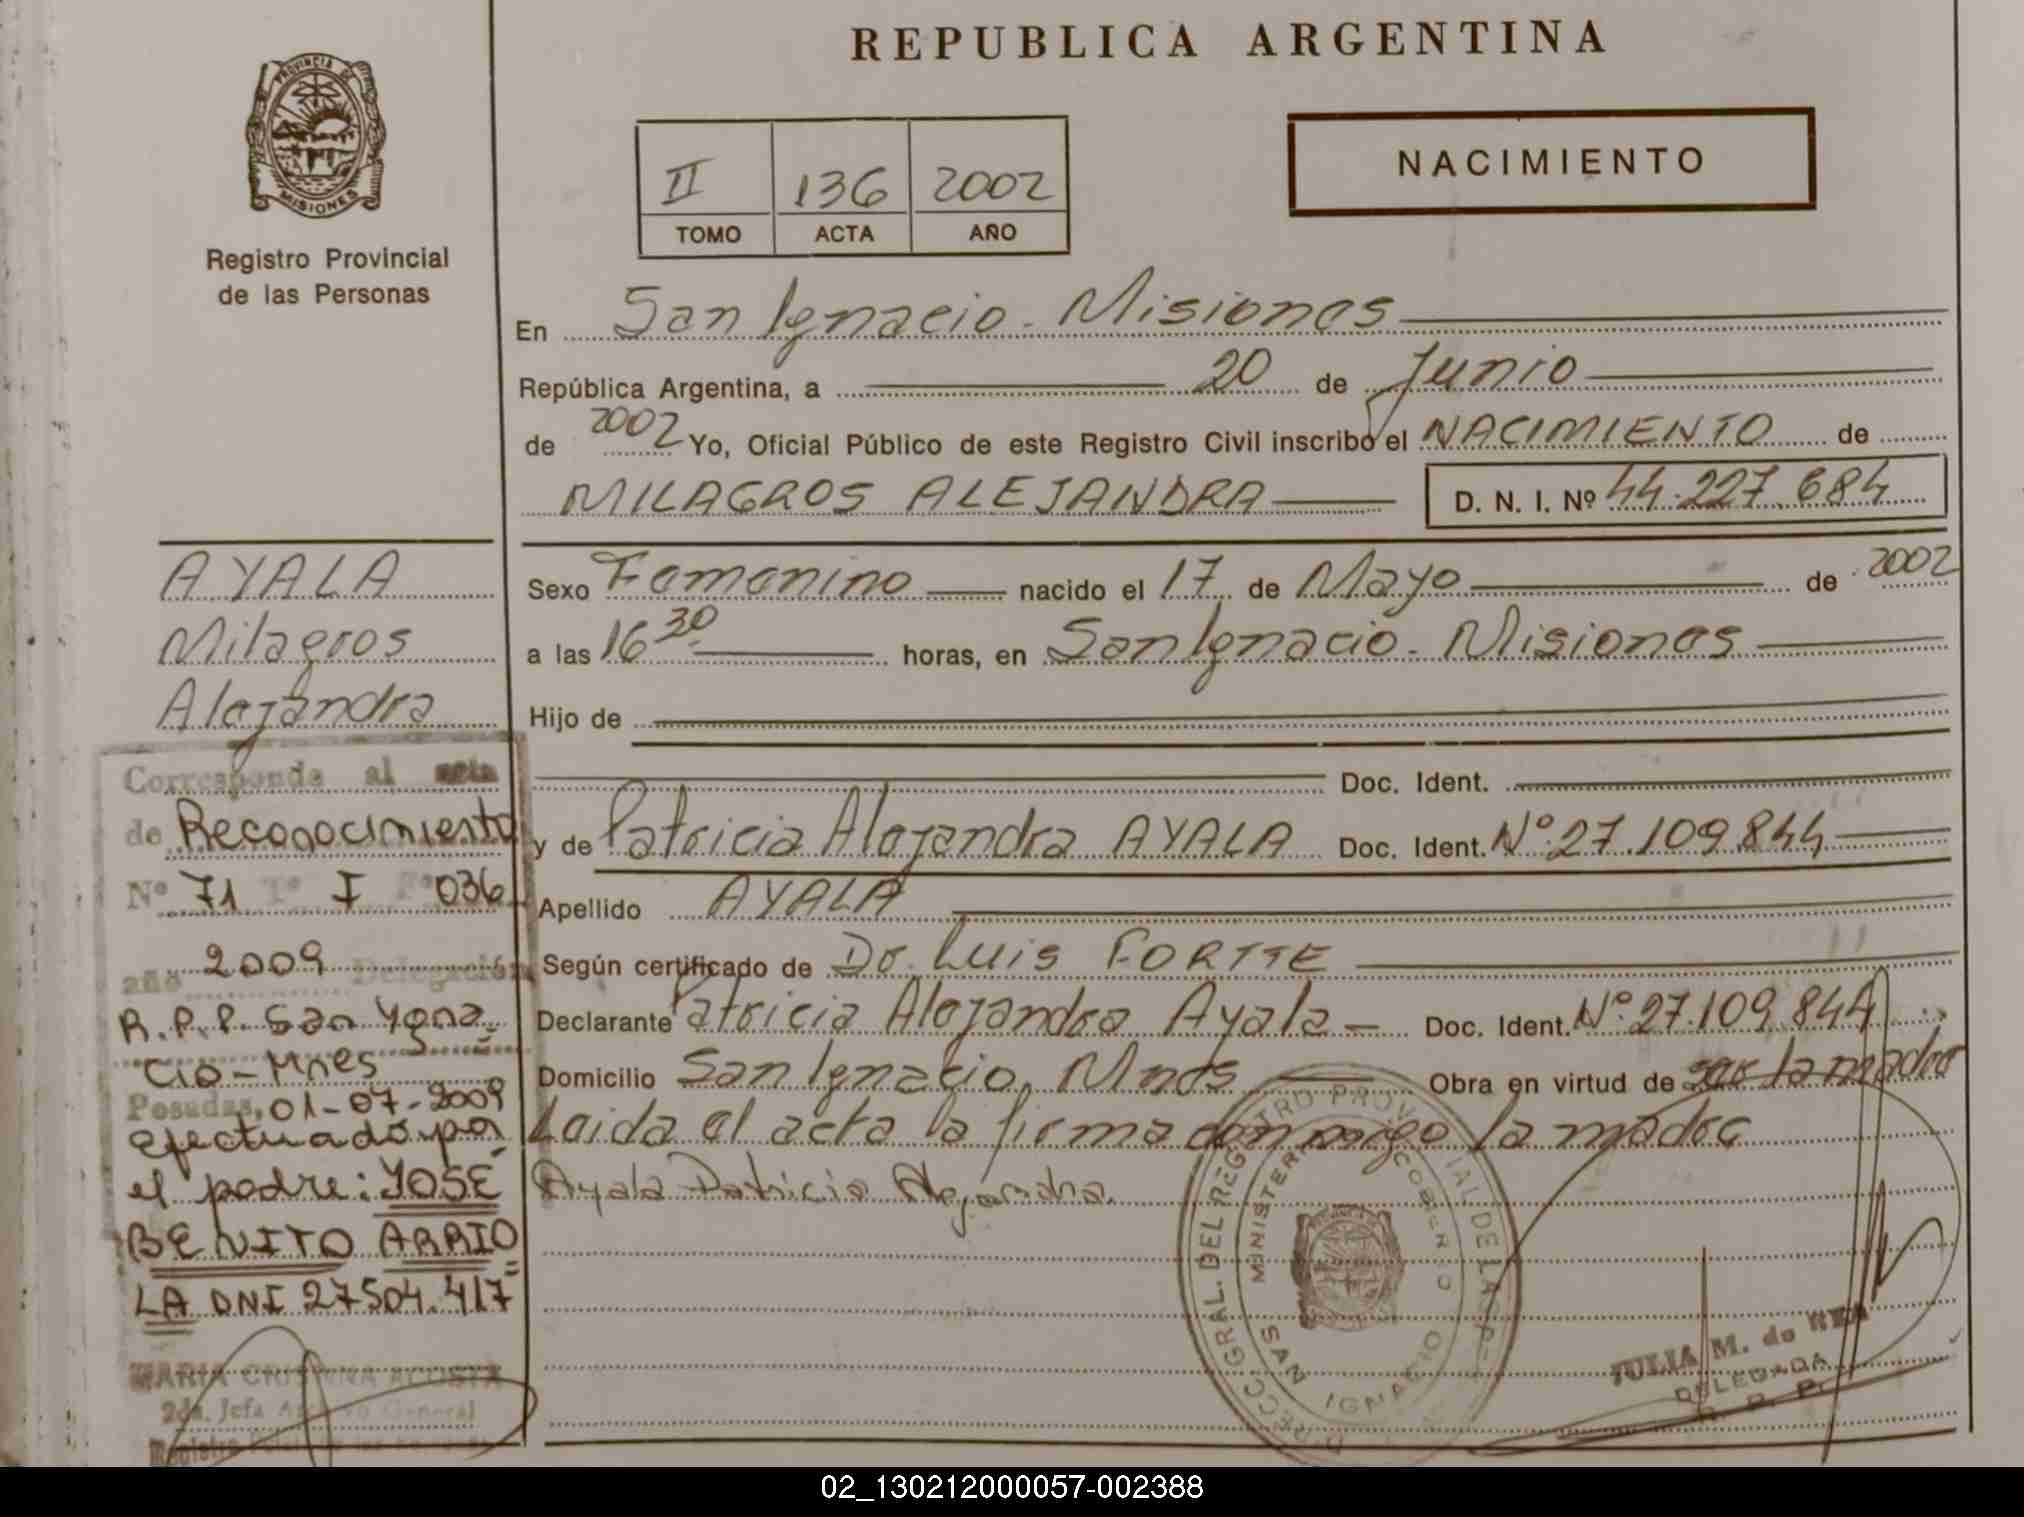 REPUBLICA ARGENTINA
PROVINCIA DE
MISIONES
Registro Provincial
de las Personas
II 136 2002
TOMO ACTA AÑO
NACIMIENTO
En San Ignacio - Misiones
República Argentina, a 20 de Junio
de 2002 Yo, Oficial Público de este Registro Civil inscribo el NACIMIENTO de
MILAGROS ALEJANDRA D. N. I. Nº 44.227.684
AYALA
Milagros
Alejandra
Sexo Femenino nacido el 17 de Mayo de 2002
a las 16 30 horas, en San Ignacio - Misiones
Hijo de
Doc. Ident.
y de Patricia Alejandra AYALA Doc. Ident. Nº 27.109.844
Apellido AYALA
Según certificado de Dr. Luis FORTTE
Declarante Patricia Alejandra Ayala Doc. Ident. Nº 27.109.844
Domicilio San Ignacio, Mnes Obra en virtud de ser la madre
Leida el acta la firma conmigo la madre
Ayala Patricia Alejandra.
Corresponde al acta
de Reconocimiento
Nº 71 Tº I Fº 036
año 2009 Delegación
R.P.P. San Ygna-
cio - Mnes
Posadas, 01-07-2009
efectuado por
el padre: JOSÉ
BENITO ARRIO
LA DNI 27504.417
MARIA CRISTINA ACOSTA
2da. Jefa Archivo General
DIRECC. GRAL. DEL REGISTRO PROVINCIAL DE LAS P
MINISTERIO GOBIERNO
SAN IGNACIO
JULIA M. de REA
DELEGADA
R. P. P.
02_130212000057-002388